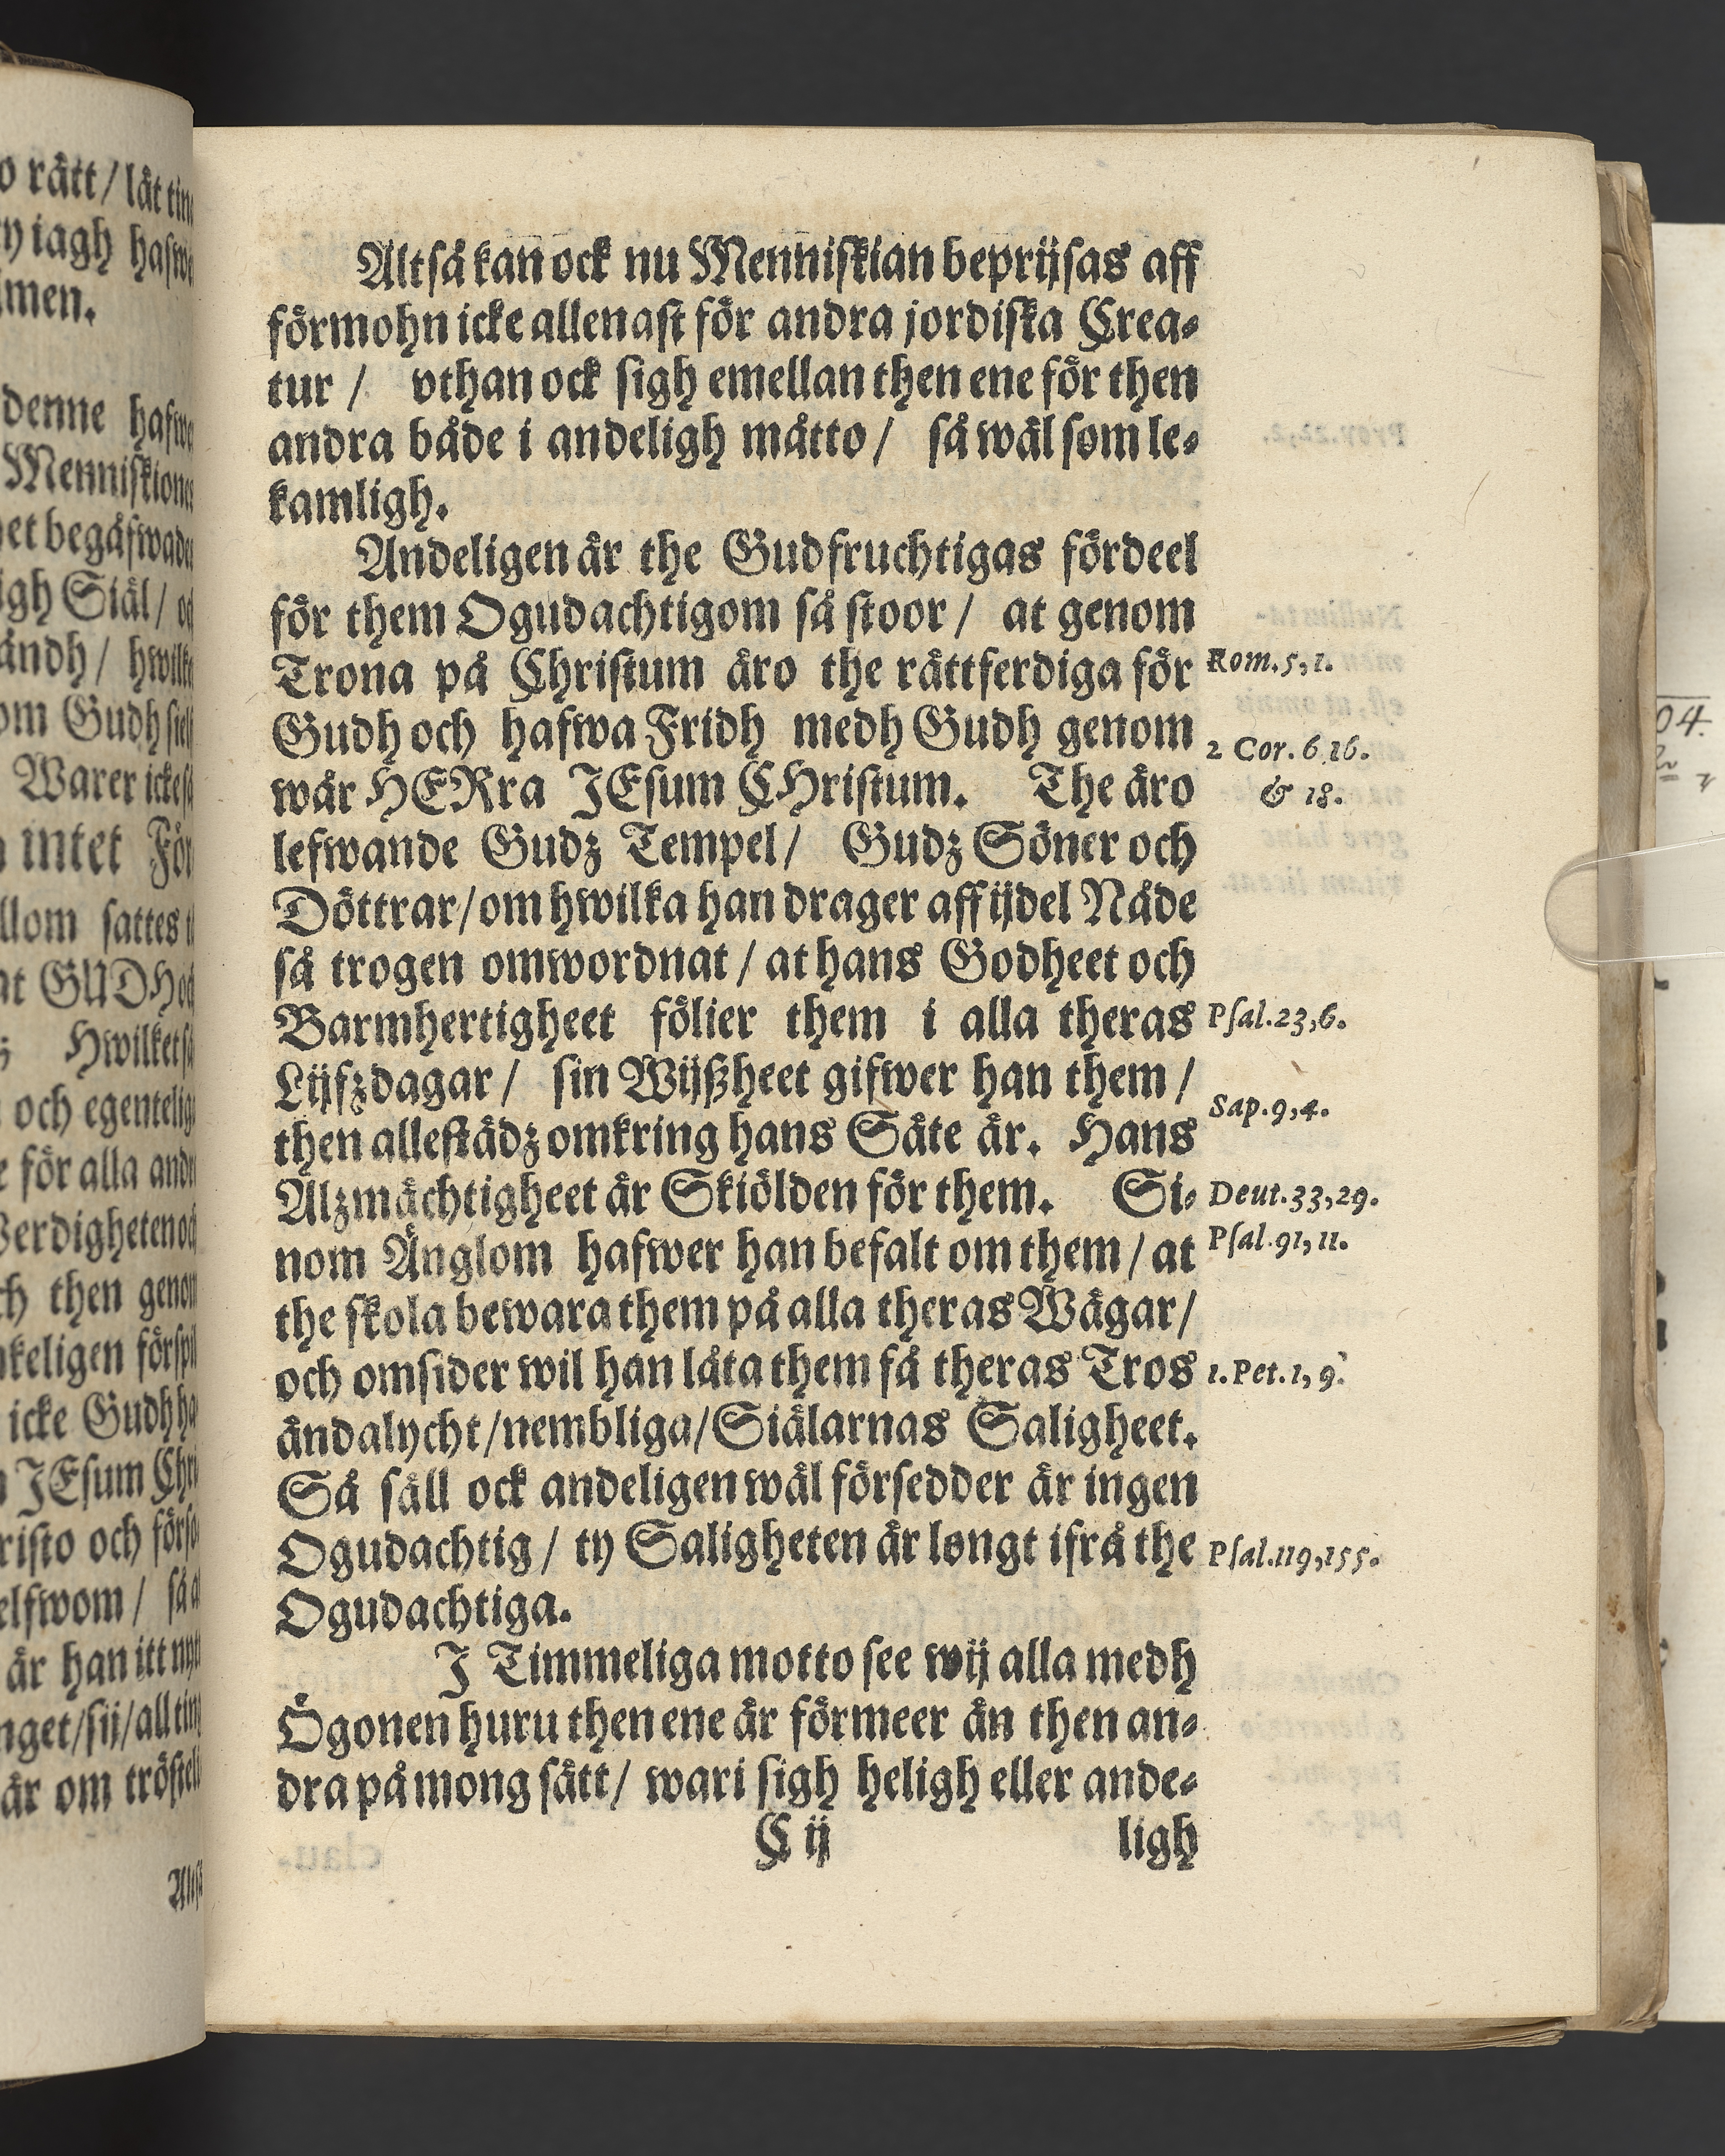 o rätt / låt tin
y iagh hafw
men.
denne hafwe
Menniskione
et begåfwade
igh Siäl / oc
ändh / hwilke
om Gudh
Warer icke så
intet För
llom sattes
at GUDH och
Hwilket så
och egentelig
e för alla andr
erdigheten och
ch then genom
keligen förspil
icke Gudh ha
JEsum Chri
risto och förso
elfwom / så a
är han itt nytt
nget / sij / all ting
är om tröstel
Altså
Altså kan ock nu Menniskian beprijsas aff
förmohn icke allenast för andra jordiska Crea-
tur / vthan ock sigh emellan then ene för then
andra både i andeligh måtto / så wäl som le-
kamligh.
Andeligen är the Gudfruchtigas fördeel
för them Ogudachtigom så stoor / at genom
Trona på Christum äro the rättferdiga för
Rom. 5, 1.
Gudh och hafwa Fridh medh Gudh genom
2 Cor. 6 16.
wår HERra JEsum CHristum. The äro
& 18.
lefwande Gudz Tempel / Gudz Söner och
Döttrar / om hwilka han drager aff ijdel Nåde
så trogen omwordnat / at hans Godheet och
Barmhertigheet fölier them i alla theras
Psal. 23, 6.
Lijfzdagar / sin Wijßheet gifwer han them /
Sap. 9, 4.
then allestädz omkring hans Säte är. Hans
Alzmächtigheet är Skiölden för them. Si-
Deut. 33, 29.
nom Änglom hafwer han befalt om them / at
Psal. 91, 11.
the skola bewara them på alla theras Wägar /
och omsider wil han låta them få theras Tros
1. Pet. 1, 9.
ändalycht / nembliga / Siälarnas Saligheet.
Så säll ock andeligen wäl försedder är ingen
Ogudachtig / ty Saligheten är longt ifrå the
Psal. 119, 155.
Ogudachtiga.
J Timmeliga motto see wij alla medh
Ögonen huru then ene är förmeer än then an-
dra på mong sätt / wari sigh heligh eller ande-
C ij
ligh
04.